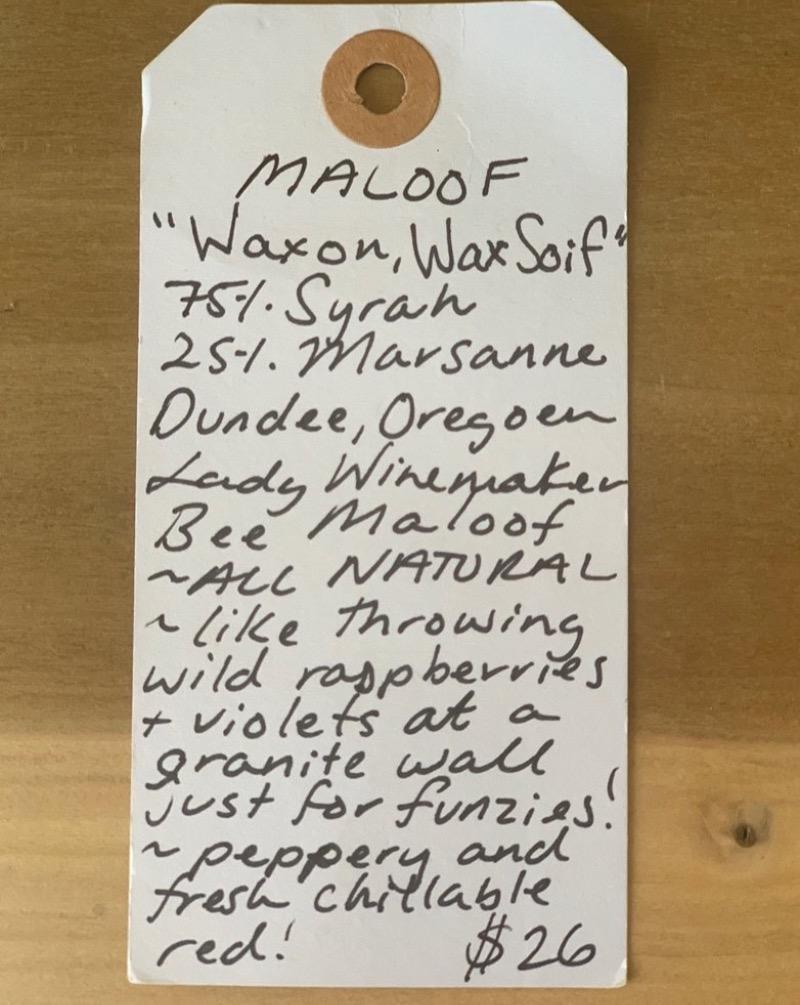 MALOOF
"Wax on, Wax Soif"
75% Syrah
25% Marsanne
Dundee, Oregoen
Lady Winemaker
Bee Maloof
~ALL NATURAL
~like throwing
wild raspberries
+ violets at a
granite wall
just for funzies!
~peppery and
fresh chillable
red! $26